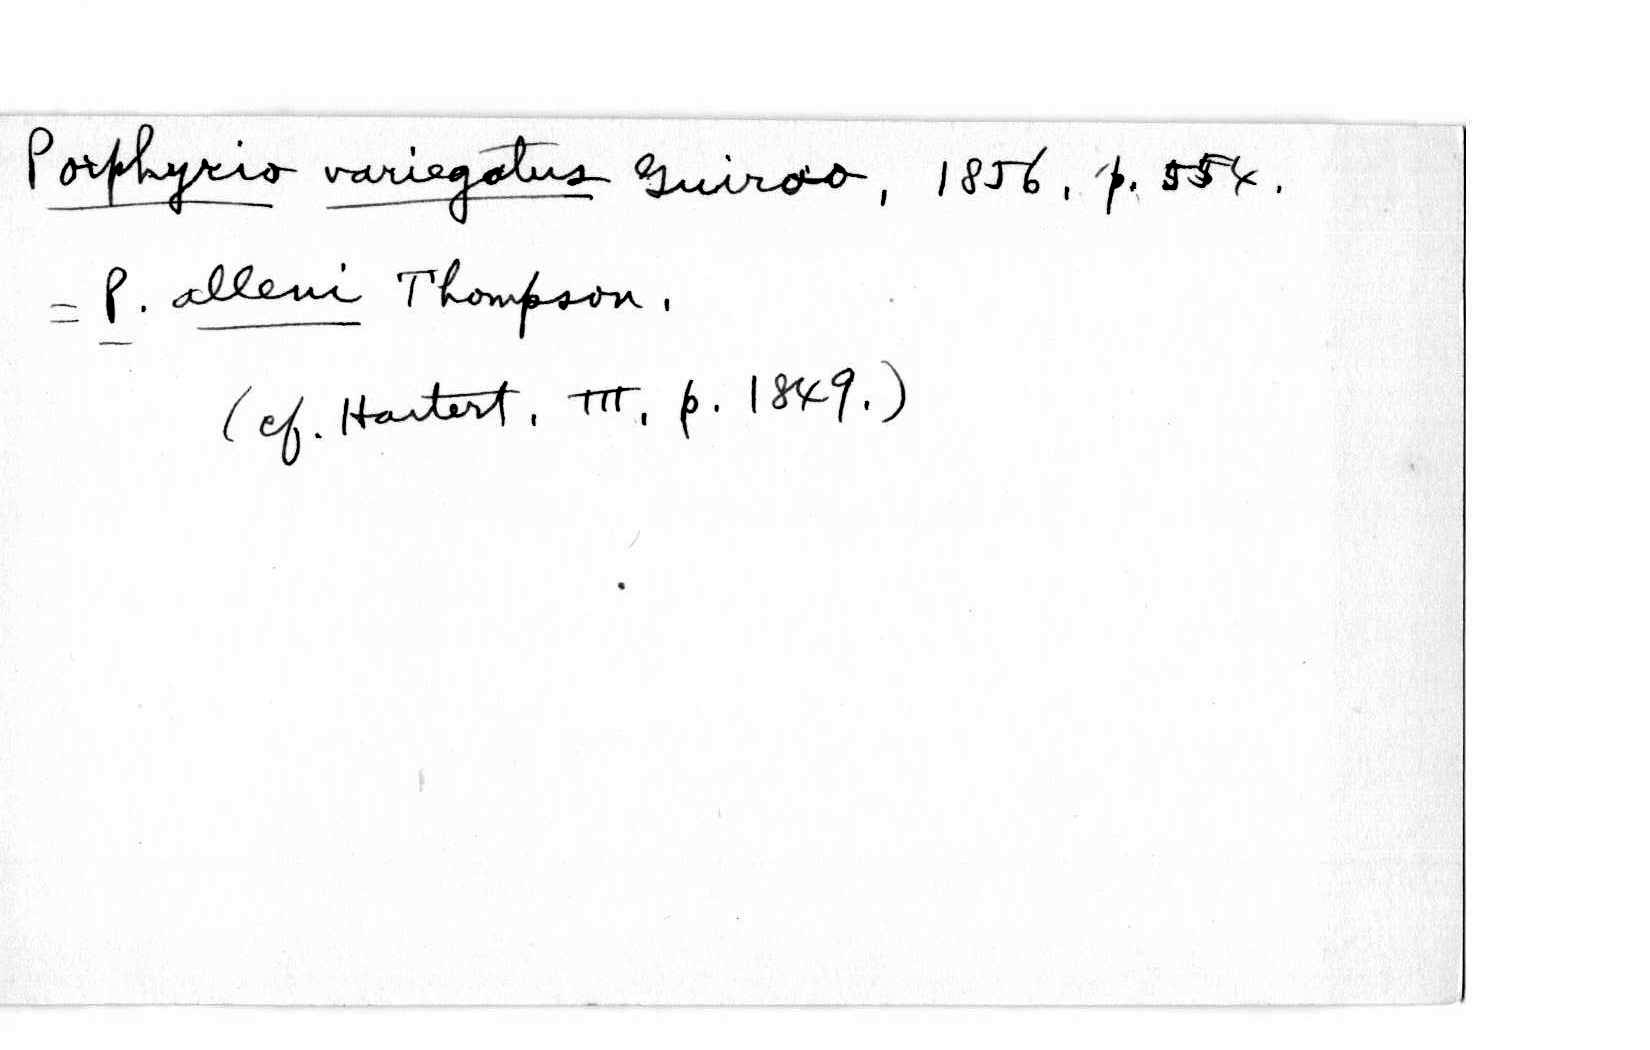 Porphyrio variegatus Guirao, 1856, p. 554.
= P. alleni Thompson.
(cf. Hartert, III, p. 1849.)